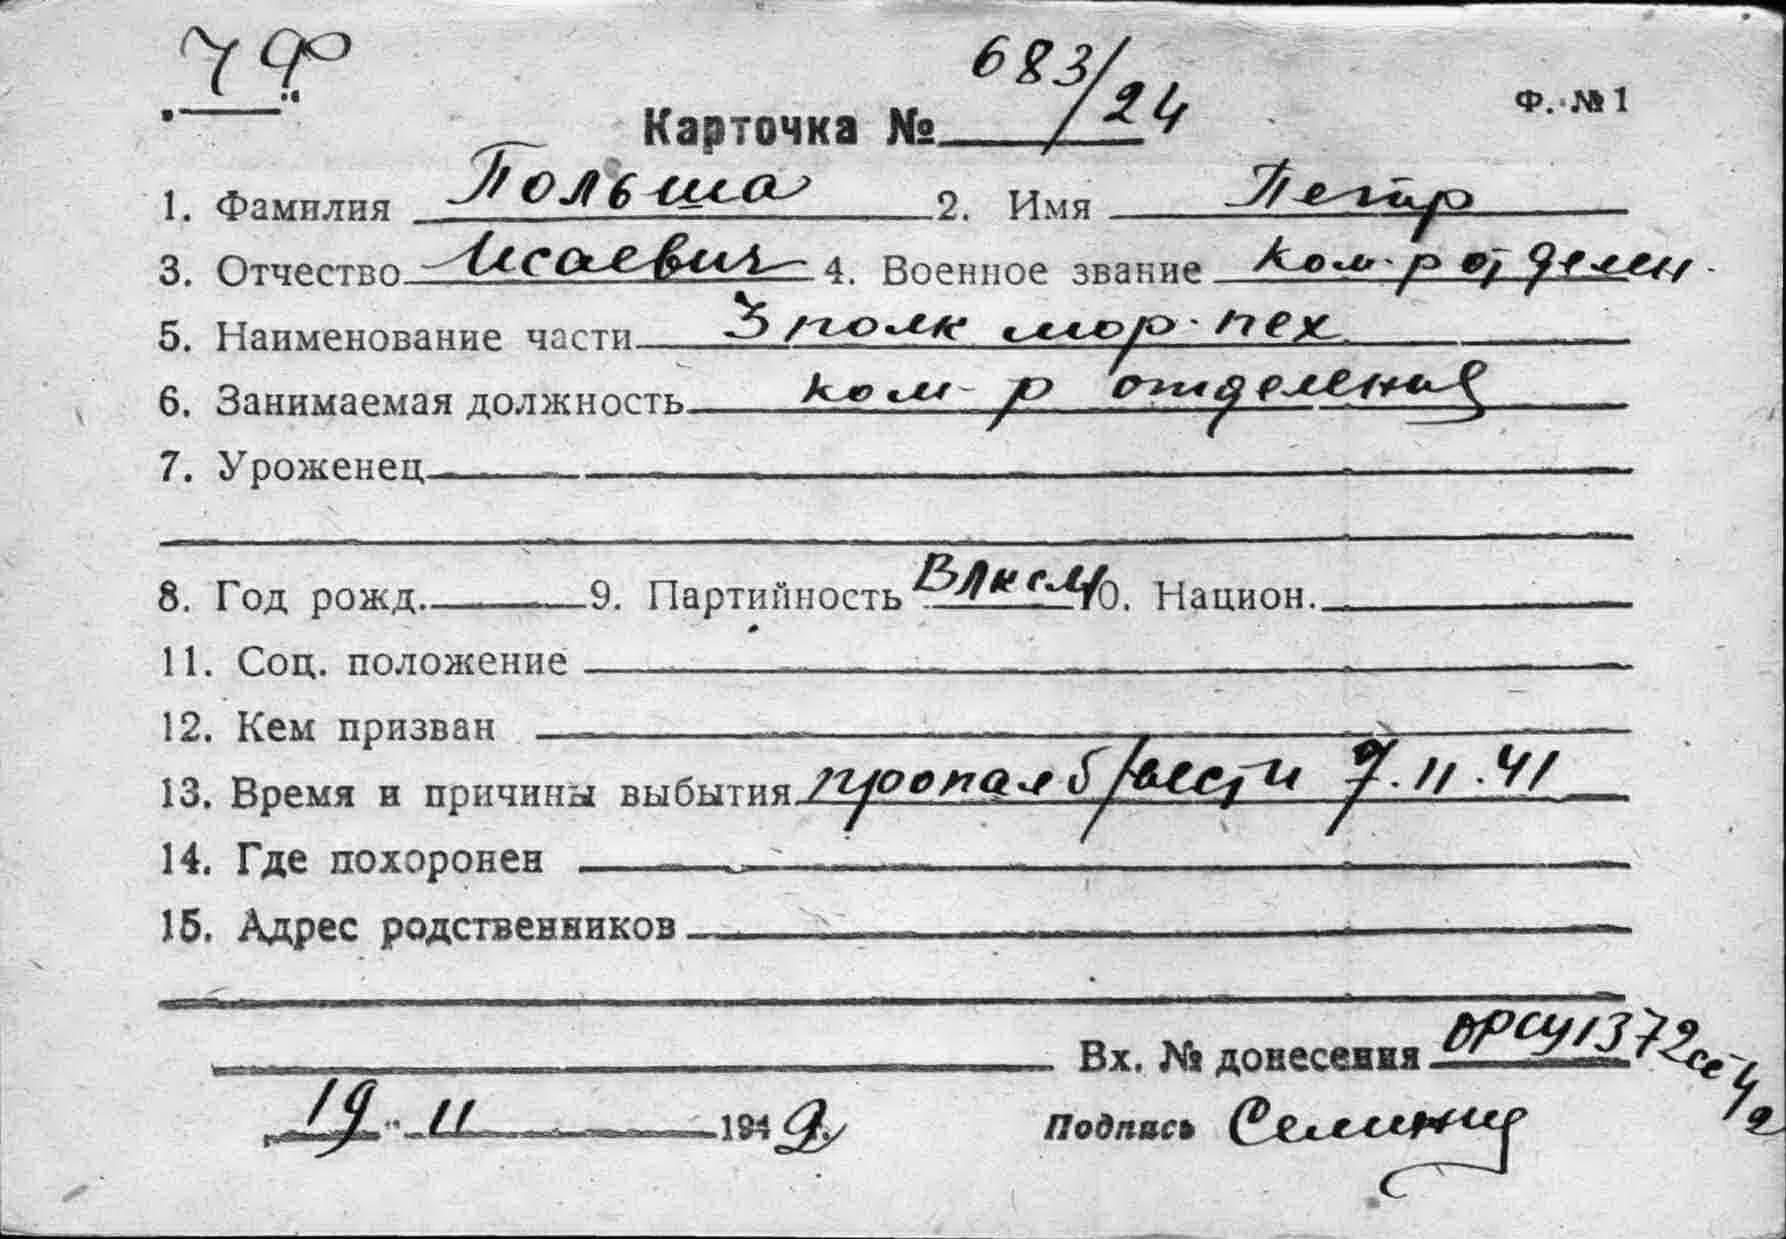 ЧФ
683/24
Ф. №1
„ “
Карточка №
1. Фамилия Польша 2. Имя Петр
3. Отчество Исаевич 4. Военное звание ком-р отделен.
5. Наименование части 3 полк мор. пех
6. Занимаемая должность ком-р отделения
7. Уроженец
8. Год рожд. 9. Партийность ВЛКСМ 10. Национ.
11. Соц. положение
12. Кем призван
13. Время и причины выбытия пропал б/вести 7.11.41
14. Где похоронен
15. Адрес родственников
Вх. № донесения ОРСУ 1372сс-42
„19“ 11 1942 г. Подпись